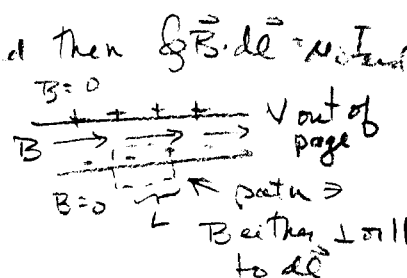 d then ∮B⃗·dℓ⃗ = μ₀I
B=0
+ + + +
B → → → V out of
page
- - -
B=0
L
path ⇒
B either ⊥ or ||
to dℓ⃗